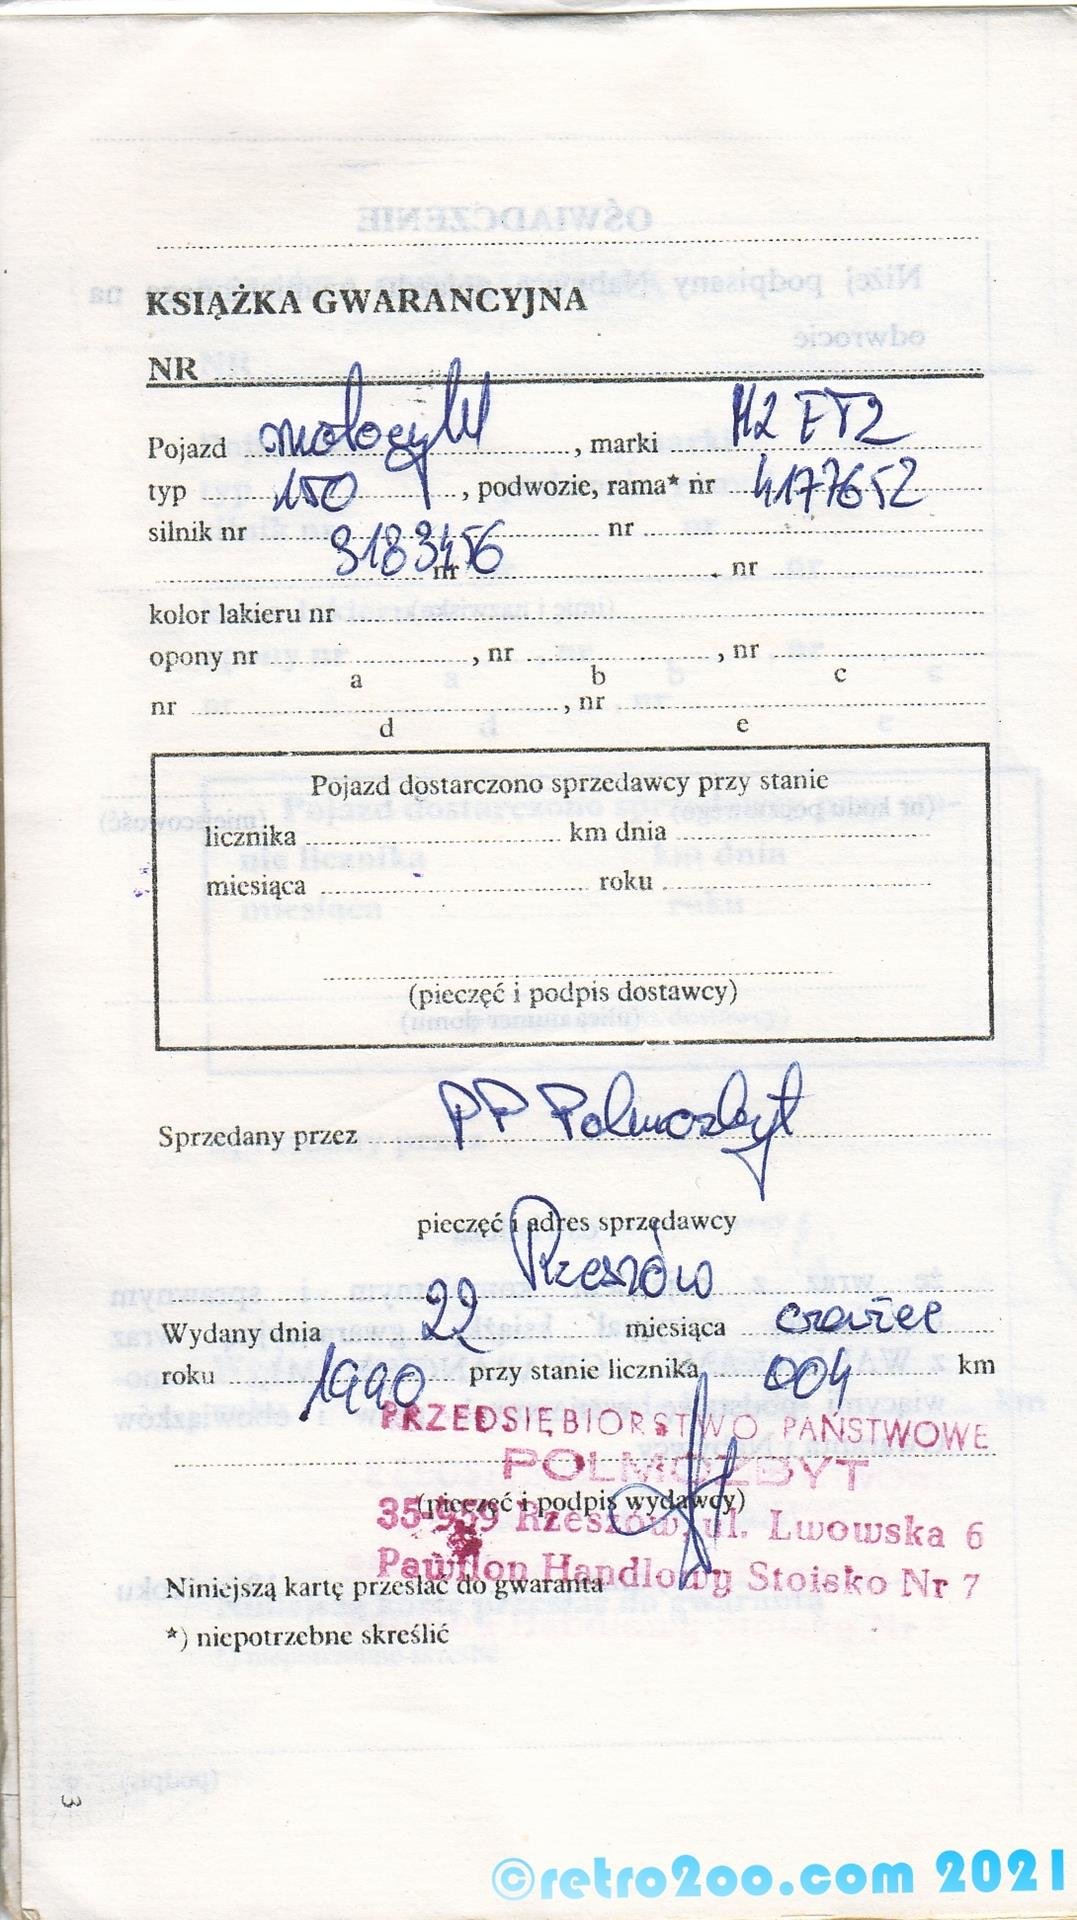 KSIĄŻKA GWARANCYJNA
NR
Pojazd motocykl, marki MZ ETZ
typ 150, podwozie, rama* nr 4177652
silnik nr 3183456 nr
nr , nr
kolor lakieru nr
opony nr , nr , nr
a b c
nr , nr
d e
Pojazd dostarczono sprzedawcy przy stanie
licznika km dnia
miesiąca roku
(pieczęć i podpis dostawcy)
Sprzedany przez PP Polmozbyt
pieczęć i adres sprzedawcy
Rzeszów
Wydany dnia 22 miesiąca czerwiec
roku 1990 przy stanie licznika 004 km
PRZEDSIĘBIORSTWO PAŃSTWOWE
POLMOZBYT
(pieczęć i podpis wydawcy)
35-959 Rzeszów, ul. Lwowska 6
Pawilon Handlowy Stoisko Nr 7
Niniejszą kartę przesłać do gwaranta
*) niepotrzebne skreślić
3
©retro2oo.com 2021